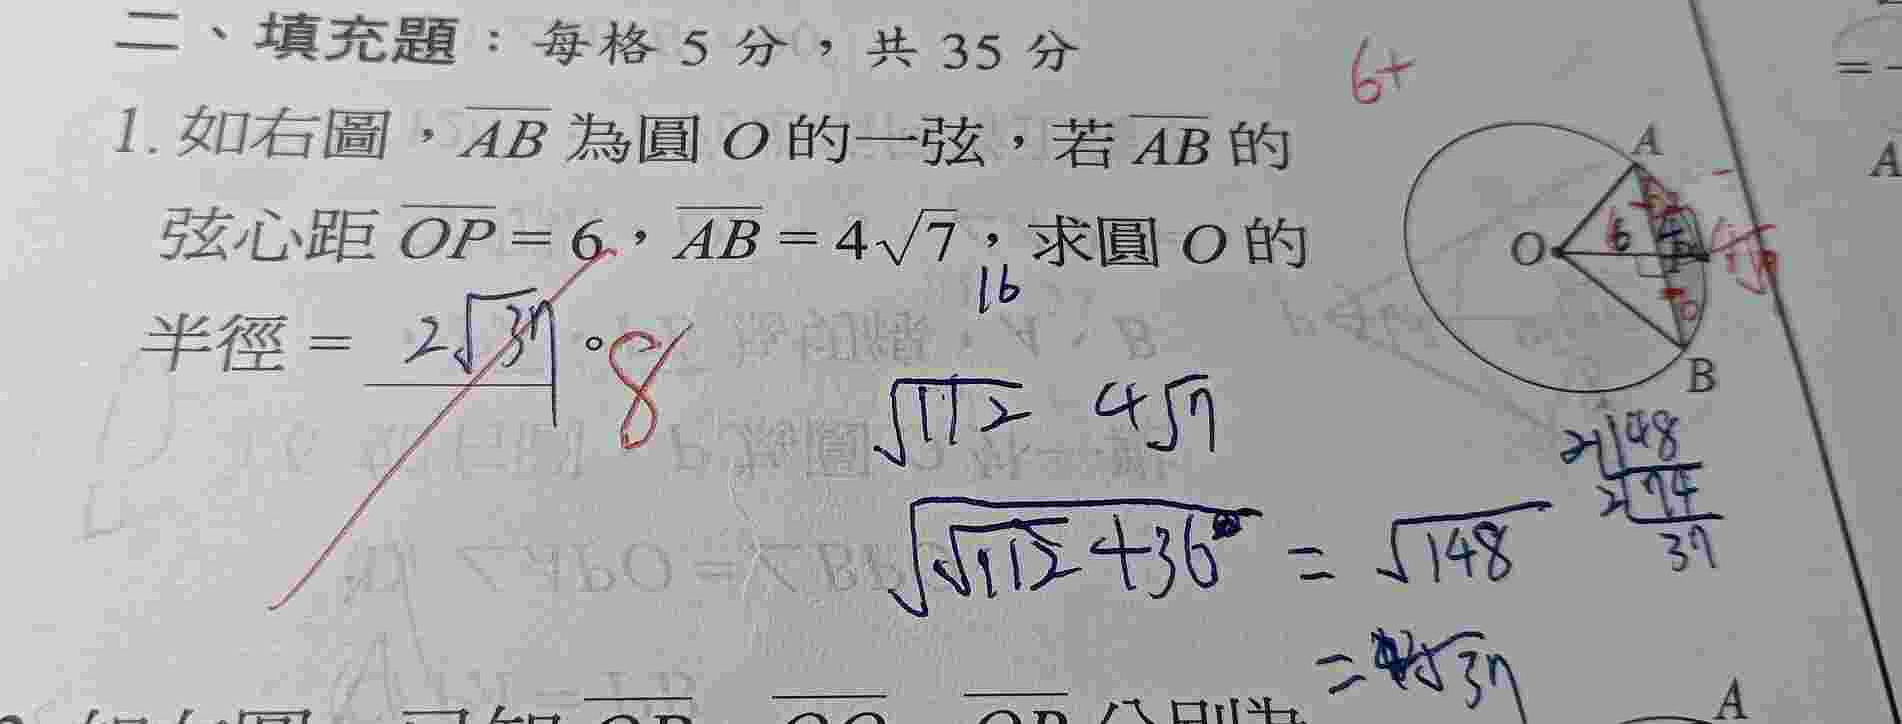 二、填充題：每格 5 分，共 35 分
6+
1. 如右圖，AB 為圓 O 的一弦，若 AB 的
弦心距 OP = 6，AB = 4√7，求圓 O 的
16
半徑 = 2√37。
8
A
O
6
B
√112 4√7
√√112 + 36 = √148
= √37
2 148
2 74
37
=
A
A